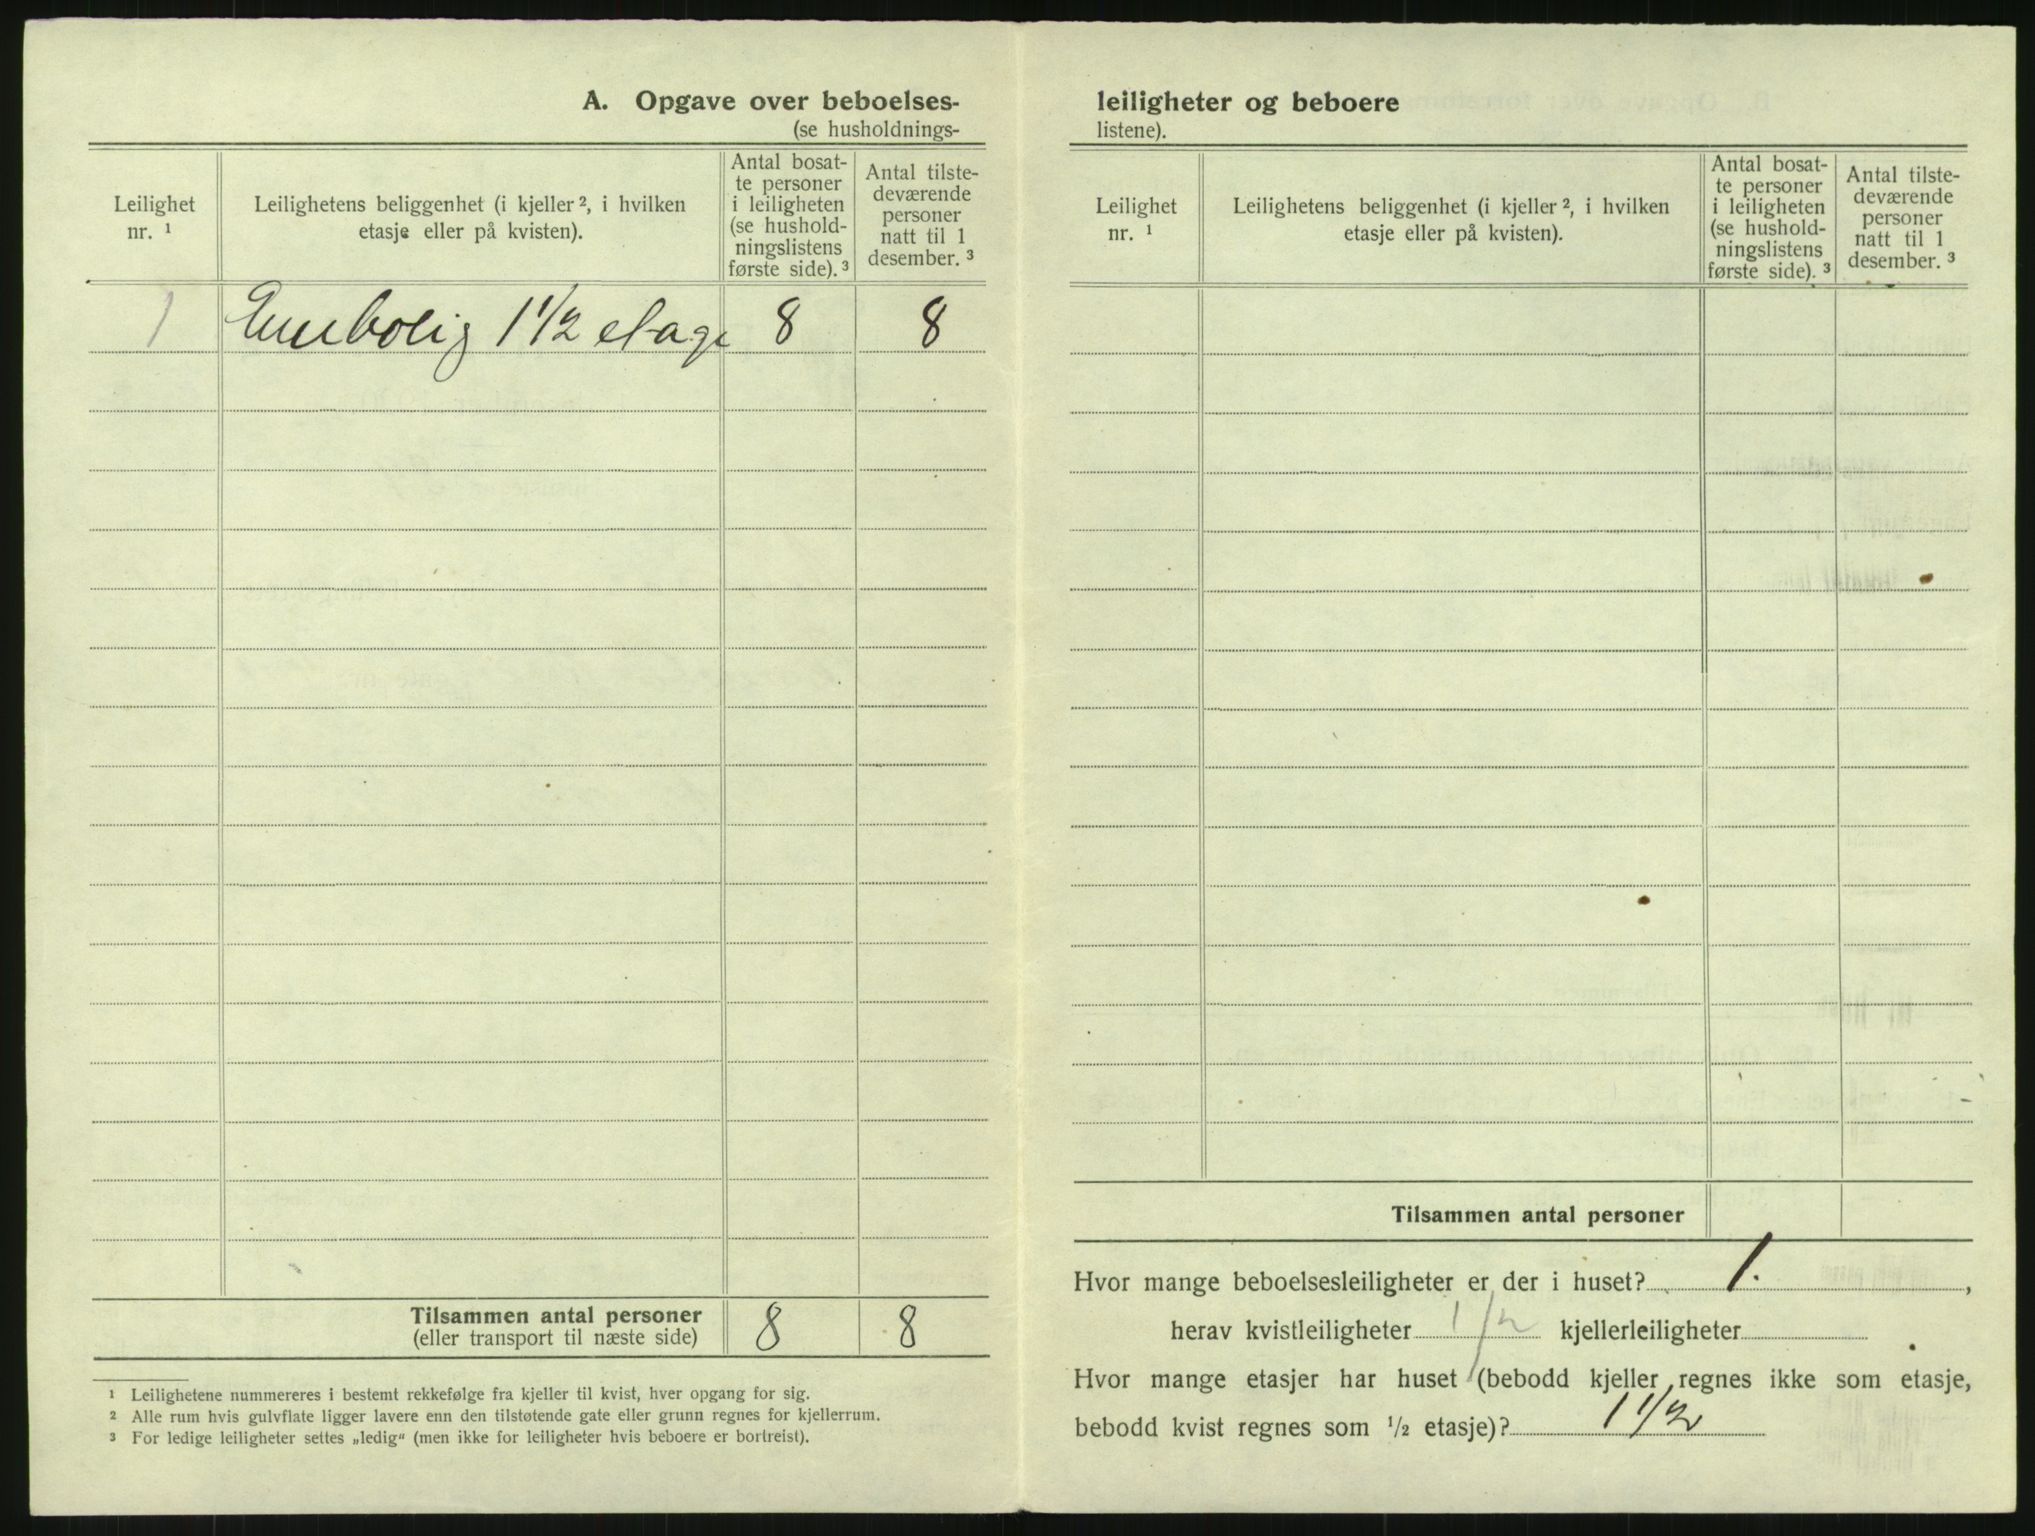 A. Opgave over beboelses-
(se husholdnings-
Leilighet nr. ¹
Leilighetens beliggenhet (i kjeller ², i hvilken
etasje eller på kvisten).
Antal bosat-
te personer
i leiligheten
(se hushold-
ningslistens
første side). ³
Antal tilste-
deværende
personer
natt til 1
desember. ³
1 Enebolig 1 1/2 etage 8 8
Tilsammen antal personer 8 8
(eller transport til næste side)
¹ Leilighetene nummereres i bestemt rekkefølge fra kjeller til kvist, hver opgang for sig.
² Alle rum hvis gulvflate ligger lavere enn den tilstøtende gate eller grunn regnes for kjellerrum.
³ For ledige leiligheter settes „ledig“ (men ikke for leiligheter hvis beboere er bortreist).
leiligheter og beboere
listene).
Leilighet nr. ¹
Leilighetens beliggenhet (i kjeller ², i hvilken
etasje eller på kvisten).
Antal bosat-
te personer
i leiligheten
(se hushold-
ningslistens
første side). ³
Antal tilste-
deværende
personer
natt til 1
desember. ³
Tilsammen antal personer
Hvor mange beboelsesleiligheter er der i huset? 1. ,
herav kvistleiligheter 1/2 kjellerleiligheter
Hvor mange etasjer har huset (bebodd kjeller regnes ikke som etasje,
bebodd kvist regnes som ½ etasje)? 1 1/2